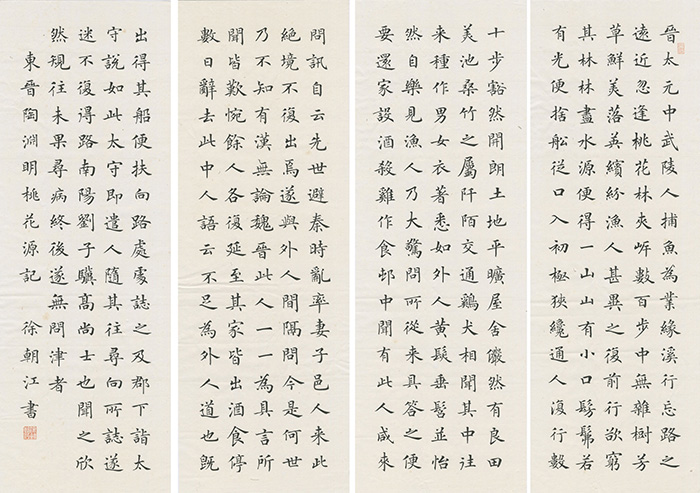 晉太元中武陵人捕魚為業緣溪行忘路之
遠近忽逢桃花林夾岸數百步中無雜樹芳
草鮮美落英繽紛漁人甚異之復前行欲窮
其林林盡水源便得一山山有小口髣髴若
有光便捨船從口入初極狹纔通人復行數
十步豁然開朗土地平曠屋舍儼然有良田
美池桑竹之屬阡陌交通鷄犬相聞其中往
來種作男女衣著悉如外人黃髮垂髫並怡
然自樂見漁人乃大驚問所從來具答之便
要還家設酒殺雞作食邨中聞有此人咸來
問訊自云先世避秦時亂率妻子邑人來此
絕境不復出焉遂與外人間隔問今是何世
乃不知有漢無論魏晉此人一一為具言所
聞皆歎惋餘人各復延至其家皆出酒食停
數日辭去此中人語云不足為外人道也既
出得其船便扶向路處處誌之及郡下詣太
守說如此太守即遣人隨其往尋向所誌遂
迷不復得路南陽劉子驥高尚士也聞之欣
然規往未果尋病終後遂無問津者
東晉陶淵明桃花源記 徐朝江書